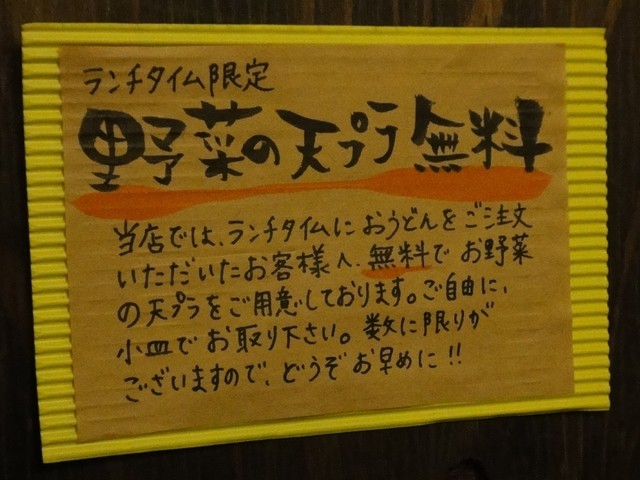 ランチタイム限定
野菜の天プラ無料
当店では、ランチタイムにおうどんをご注文
いただいたお客様へ、無料でお野菜
の天プラをご用意しております。ご自由に、
小皿でお取り下さい。数に限りが
ございますので、どうぞお早めに!!